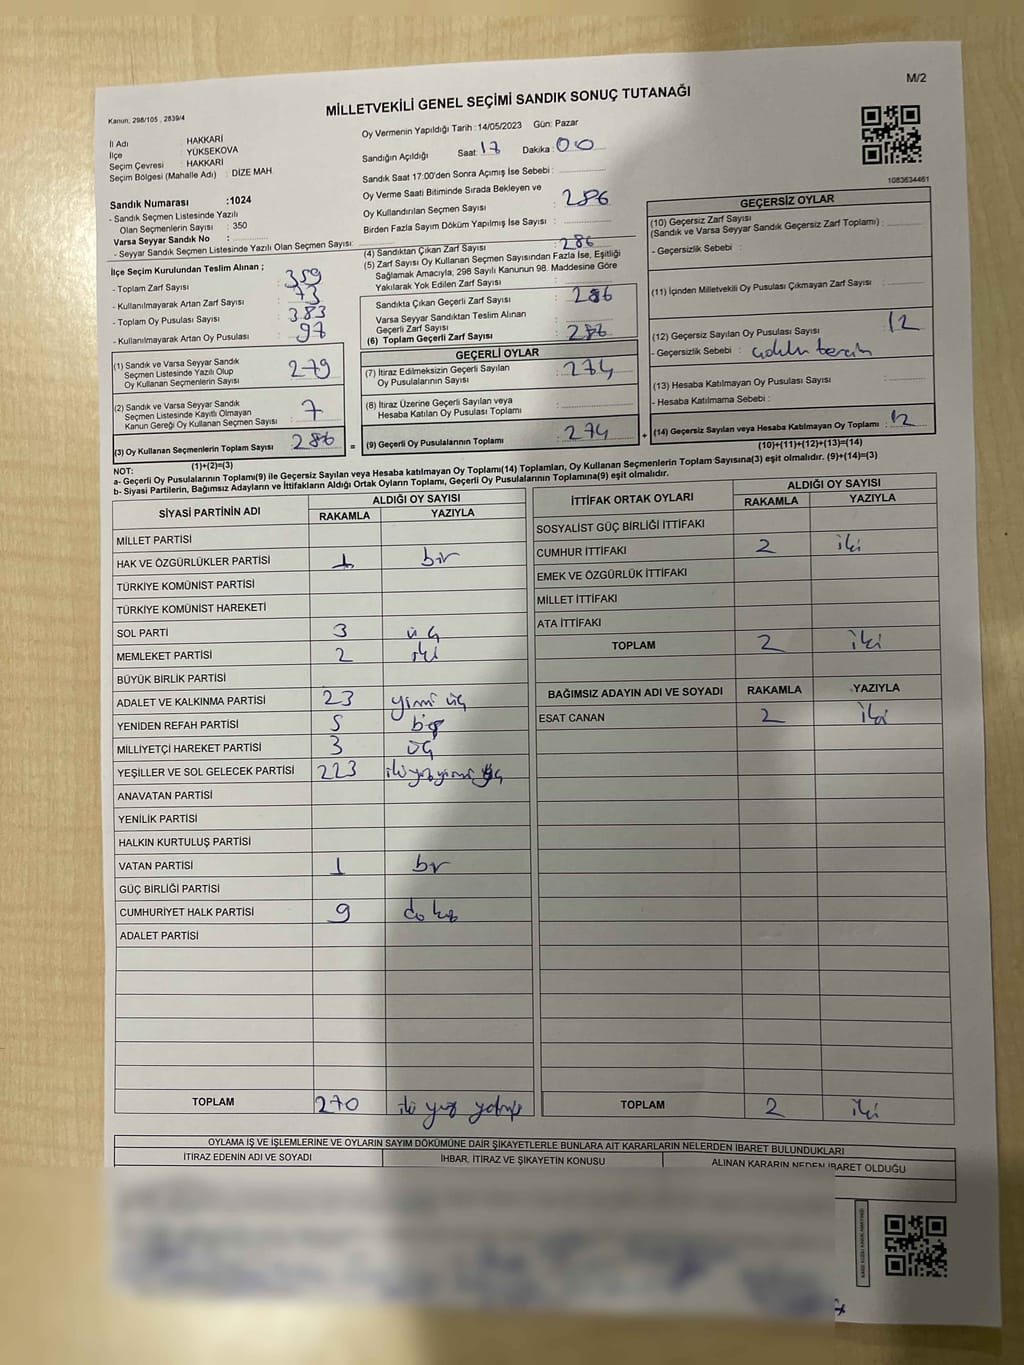 M/2
Kanun, 298/105 , 2839/4
MİLLETVEKİLİ GENEL SEÇİMİ SANDIK SONUÇ TUTANAĞI
İl Adı HAKKARİ
İlçe YÜKSEKOVA
Seçim Çevresi HAKKARİ
Seçim Bölgesi (Mahalle Adı) : DİZE MAH.
Oy Vermenin Yapıldığı Tarih : 14/05/2023 Gün: Pazar
Sandığın Açıldığı Saat: 17 Dakika : 00
Sandık Saat 17:00'den Sonra Açımış İse Sebebi :
Oy Verme Saati Bitiminde Sırada Bekleyen ve
Oy Kullandırılan Seçmen Sayısı : 286
Birden Fazla Sayım Döküm Yapılmış İse Sayısı :
1083634461
Sandık Numarası :1024
- Sandık Seçmen Listesinde Yazılı
Olan Seçmenlerin Sayısı : 350
Varsa Seyyar Sandık No :
- Seyyar Sandık Seçmen Listesinde Yazılı Olan Seçmen Sayısı:
İlçe Seçim Kurulundan Teslim Alınan ;
- Toplam Zarf Sayısı : 359
- Kullanılmayarak Artan Zarf Sayısı : 73
- Toplam Oy Pusulası Sayısı : 383
- Kullanılmayarak Artan Oy Pusulası : 97
(1) Sandık ve Varsa Seyyar Sandık
Seçmen Listesinde Yazılı Olup
Oy Kullanan Seçmenlerin Sayısı : 279
(2) Sandık ve Varsa Seyyar Sandık
Seçmen Listesinde Kayıtlı Olmayan
Kanun Gereği Oy Kullanan Seçmen Sayısı : 7
(3) Oy Kullanan Seçmenlerin Toplam Sayısı : 286 =
(1)+(2)=(3)
(4) Sandıktan Çıkan Zarf Sayısı : 286
(5) Zarf Sayısı Oy Kullanan Seçmen Sayısından Fazla İse, Eşitliği
Sağlamak Amacıyla, 298 Sayılı Kanunun 98. Maddesine Göre
Yakılarak Yok Edilen Zarf Sayısı :
Sandıkta Çıkan Geçerli Zarf Sayısı : 286
Varsa Seyyar Sandıktan Teslim Alınan
Geçerli Zarf Sayısı :
(6) Toplam Geçerli Zarf Sayısı : 286
GEÇERLİ OYLAR
(7) İtiraz Edilmeksizin Geçerli Sayılan
Oy Pusulalarının Sayısı : 274
(8) İtiraz Üzerine Geçerli Sayılan veya
Hesaba Katılan Oy Pusulası Toplamı :
(9) Geçerli Oy Pusulalarının Toplamı : 274 +
GEÇERSİZ OYLAR
(10) Geçersiz Zarf Sayısı
(Sandık ve Varsa Seyyar Sandık Geçersiz Zarf Toplamı) :
- Geçersizlik Sebebi :
(11) İçinden Milletvekili Oy Pusulası Çıkmayan Zarf Sayısı :
(12) Geçersiz Sayılan Oy Pusulası Sayısı : 12
- Geçersizlik Sebebi :
(13) Hesaba Katılmayan Oy Pusulası Sayısı :
- Hesaba Katılmama Sebebi :
(14) Geçersiz Sayılan veya Hesaba Katılmayan Oy Toplamı : 12
(10)+(11)+(12)+(13)=(14)
NOT:
a- Geçerli Oy Pusulalarının Toplamı(9) ile Geçersiz Sayılan veya Hesaba katılmayan Oy Toplamı(14) Toplamları, Oy Kullanan Seçmenlerin Toplam Sayısına(3) eşit olmalıdır. (9)+(14)=(3)
b- Siyasi Partilerin, Bağımsız Adayların ve İttifakların Aldığı Ortak Oyların Toplamı, Geçerli Oy Pusulalarının Toplamına(9) eşit olmalıdır.
SİYASİ PARTİNİN ADI ALDIĞI OY SAYISI
RAKAMLA YAZIYLA
MİLLET PARTİSİ
HAK VE ÖZGÜRLÜKLER PARTİSİ 1 bir
TÜRKİYE KOMÜNİST PARTİSİ
TÜRKİYE KOMÜNİST HAREKETİ
SOL PARTİ 3 üç
MEMLEKET PARTİSİ 2 iki
BÜYÜK BİRLİK PARTİSİ
ADALET VE KALKINMA PARTİSİ 23 yirmi üç
YENİDEN REFAH PARTİSİ 5 beş
MİLLİYETÇİ HAREKET PARTİSİ 3 üç
YEŞİLLER VE SOL GELECEK PARTİSİ 223 iki yüz yirmi üç
ANAVATAN PARTİSİ
YENİLİK PARTİSİ
HALKIN KURTULUŞ PARTİSİ
VATAN PARTİSİ 1 bir
GÜÇ BİRLİĞİ PARTİSİ
CUMHURİYET HALK PARTİSİ 9 dokuz
ADALET PARTİSİ
TOPLAM 270 iki yüz yetmiş
İTTİFAK ORTAK OYLARI ALDIĞI OY SAYISI
RAKAMLA YAZIYLA
SOSYALİST GÜÇ BİRLİĞİ İTTİFAKI
CUMHUR İTTİFAKI 2 iki
EMEK VE ÖZGÜRLÜK İTTİFAKI
MİLLET İTTİFAKI
ATA İTTİFAKI
TOPLAM 2 iki
BAĞIMSIZ ADAYIN ADI VE SOYADI RAKAMLA YAZIYLA
ESAT CANAN 2 iki
TOPLAM 2 iki
OYLAMA İŞ VE İŞLEMLERİNE VE OYLARIN SAYIM DÖKÜMÜNE DAİR ŞİKAYETLERLE BUNLARA AİT KARARLARIN NELERDEN İBARET BULUNDUKLARI
İTİRAZ EDENİN ADI VE SOYADI İHBAR, İTİRAZ VE ŞİKAYETİN KONUSU ALINAN KARARIN NEDEN İBARET OLDUĞU